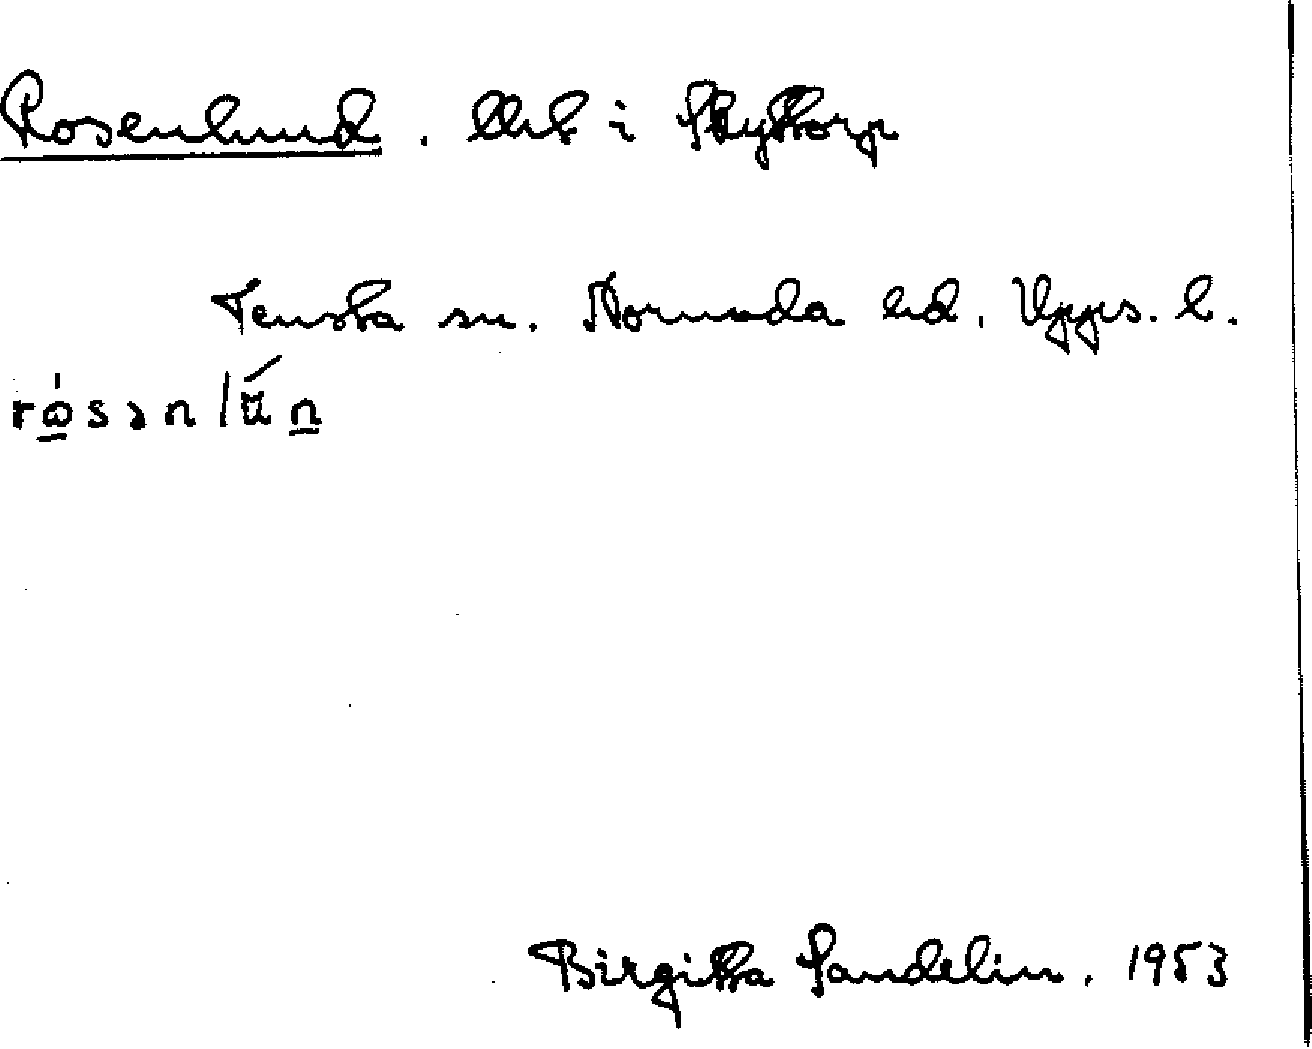 Rosenlund. i Skyttorp
Tensta sn. Norunda hd. Upps. l.
Birgitta Sandelin. 1953